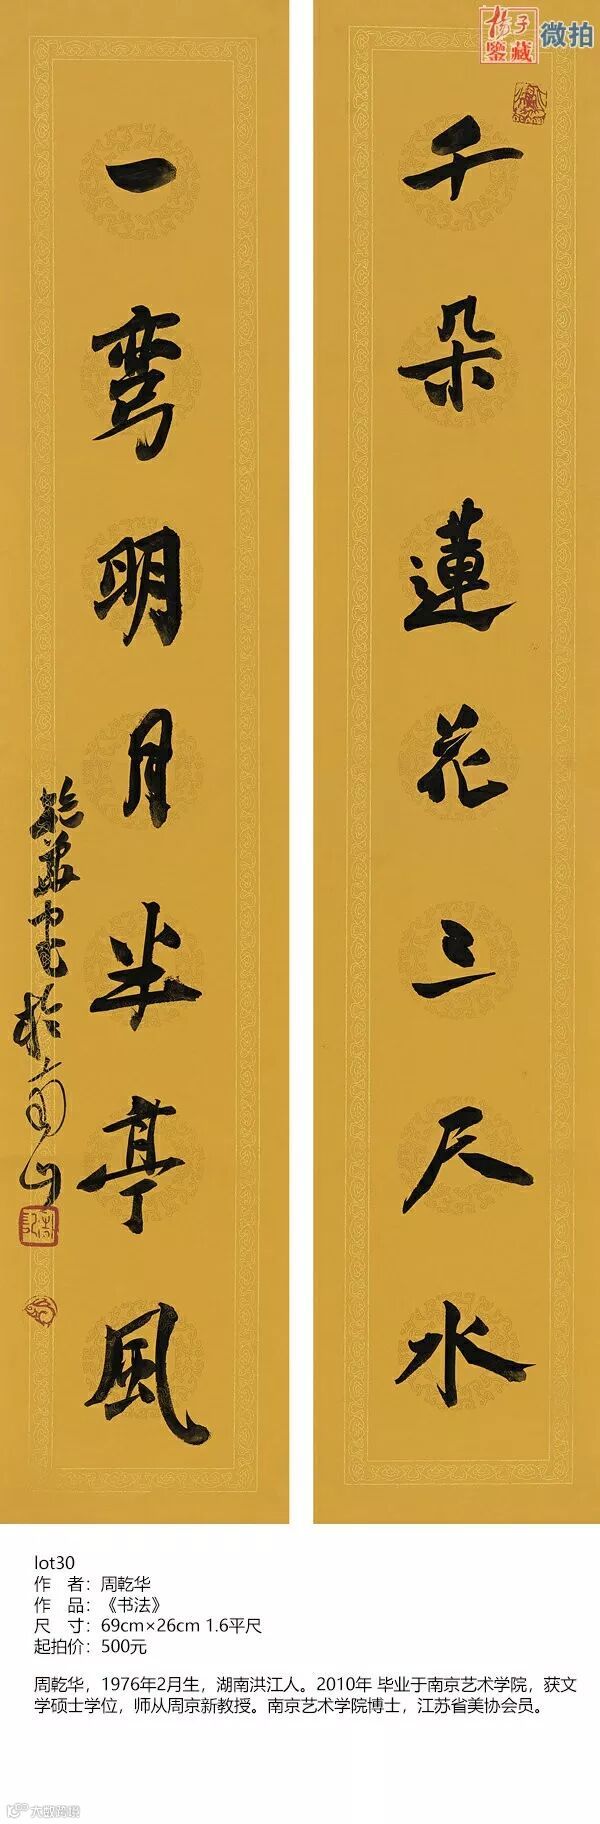 杨子
鉴藏
微拍
千朵蓮花三尺水
一弯明月半亭風
lot30
作 者：周乾华
作 品：《书法》
尺 寸：69cm×26cm 1.6平尺
起拍价：500元
周乾华，1976年2月生，湖南洪江人。2010年 毕业于南京艺术学院，获文
学硕士学位，师从周京新教授。南京艺术学院博士，江苏省美协会员。
大数跨境